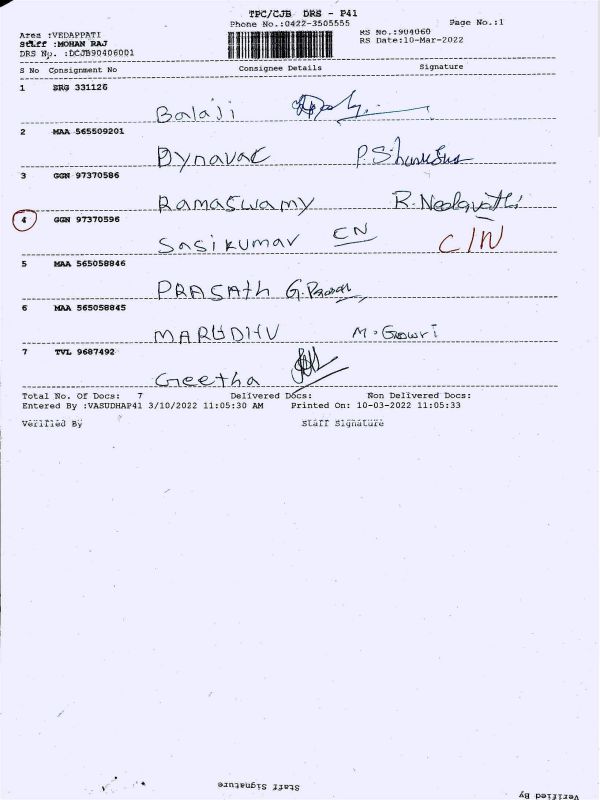 TPC/CJB DRS - P41
Phone No.:0422-3505555 Page No.:1
Area :VEDAPPATI RS No.:904060
Staff :MOHAN RAJ RS Date:10-Mar-2022
DRS No. :DCJB90406001
S No Consignment No Consignee Details Signature
1 BRG 331126
Balaji
2 MAA 565509201
Dynavac
3 GGN 97370586
Ramaswamy R. Neelavathi
4 GGN 97370596
Sasikumar CN C/N
5 MAA 565058846
PRASAth
6 MAA 565058845
MARUDHU M. Gowri
7 TVL 9687492
Geetha
Total No. Of Docs: 7 Delivered Docs: Non Delivered Docs:
Entered By :VASUDHAP41 3/10/2022 11:05:30 AM Printed On: 10-03-2022 11:05:33
Verified By Staff Signature
Staff Signature
Verified By